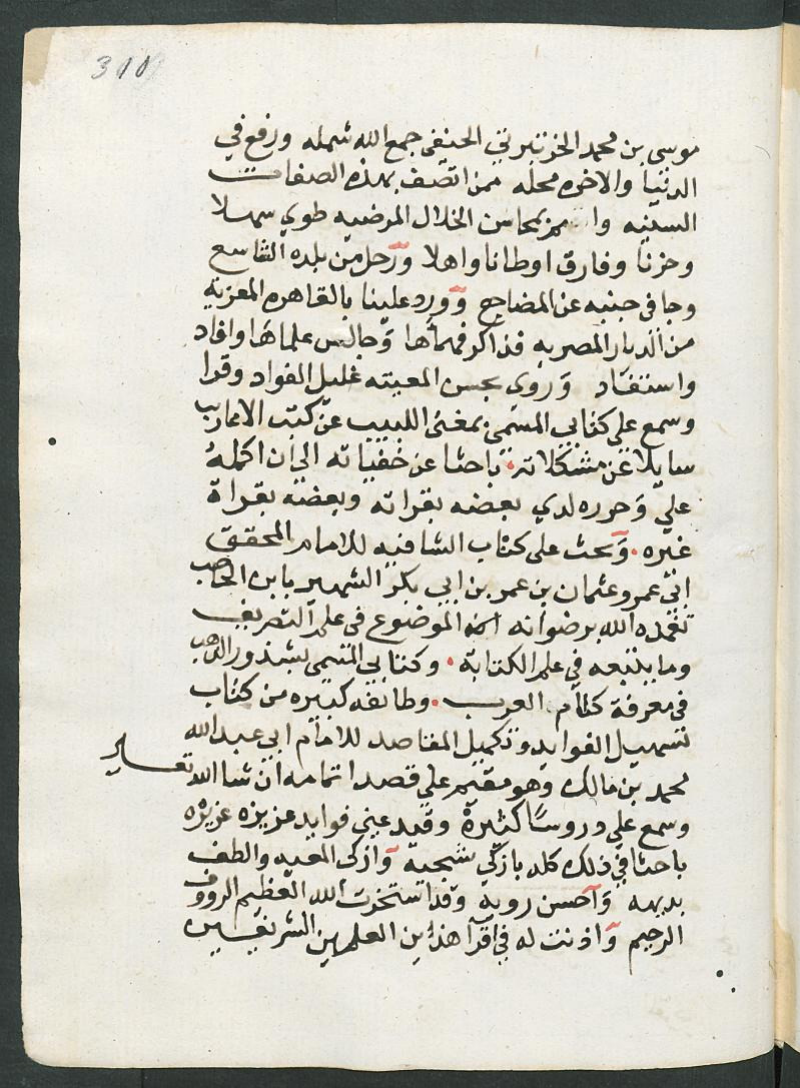 311
موسى بن محمد الخرتبرتي الحنفي جمع الله شمله ورفع في
الدنيا والاخره محله ممن اتصف بهذه الصفات
السنيه وا بمحاسن الخلال المرضيه طوي سهلا
وحزنا وفارق اوطانا واهلا ورحل من بلده الشاسع
وجافى جنبه عن المضاجع وورد علينا بالقاهره المعزيه
من الديار المصريه فذاكر فهماها وجالس علماها وافاد
واستفاد وروي بحسن المعيته غليل الفواد وقرا
وسمع علي كتابي المسمى بمغنى اللبيب عن كتب الاعاريب
سايلا عن مشكلاته باحثا عن خفياته الي ان اكمله
علي وحرره لدي بعضه بقراته وبعضه بقراة
غيره وبحث على كتاب الشافيه للامام المحقق
ابي عمرو عثمان بن عمر بن ابي بكر الشهير بابن الحاجب
تغمده الله برضوانه الموضوع في علم التصريف
وما يتبعه في علم الكتابة وكتابي المسمى بشذور الذهب
في معرفة كلام العرب وطايفه كبيره من كتاب
تسهيل الفوايد وتكميل المقاصد للامام ابي عبد الله
محمد بن مالك وهو مقيم علي قصد اتمامه ان شا الله تعالى
وسمع علي دروسًا كثيرة وقيد عني فوايد عزيزه غزيره
باحثا في ذلك كله بازكي سجيه وازكى المعيه والطف
بديهه واحسن رويه وقد استخرت الله العظيم الرووف
الرحيم واذنت له في اقرا هذين العلمين الشريفين